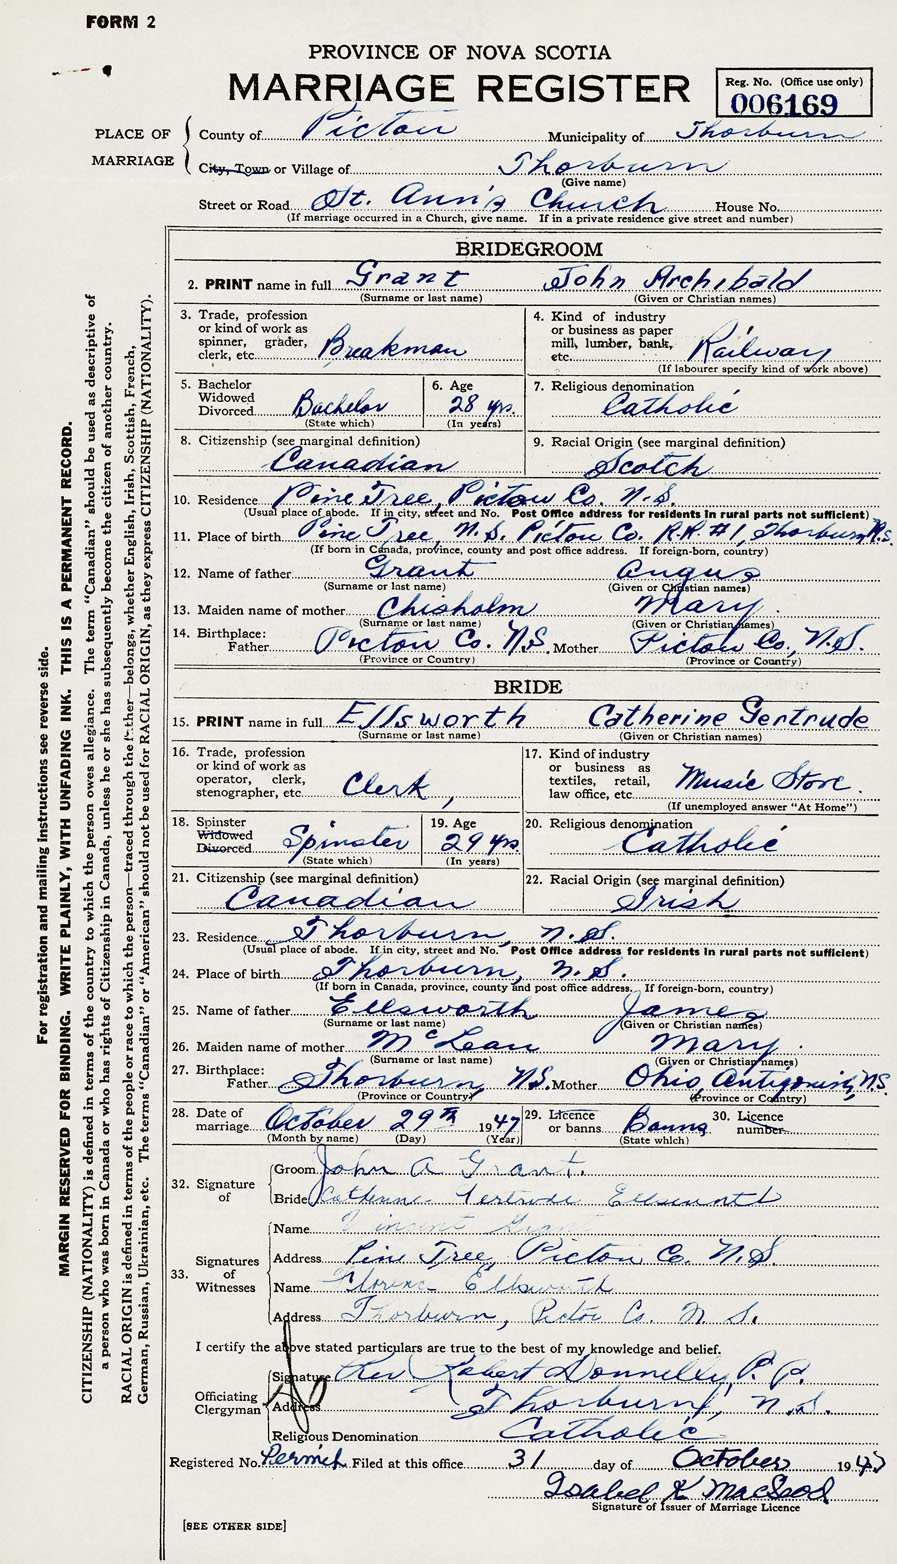 FORM 2
PROVINCE OF NOVA SCOTIA
MARRIAGE REGISTER
Reg. No. (Office use only)
006169
PLACE OF MARRIAGE
County of Pictou Municipality of Thorburn
City, Town or Village of Thorburn
(Give name)
Street or Road St. Ann's Church House No.
(If marriage occurred in a Church, give name. If in a private residence give street and number)
BRIDEGROOM
2. PRINT name in full Grant John Archibald
(Surname or last name) (Given or Christian names)
3. Trade, profession or kind of work as spinner, grader, clerk, etc. Breakman
4. Kind of industry or business as paper mill, lumber, bank, etc. Railway
(If labourer specify kind of work above)
5. Bachelor Widowed Divorced Bachelor
(State which)
6. Age 28 yrs.
(In years)
7. Religious denomination
Catholic
8. Citizenship (see marginal definition)
Canadian
9. Racial Origin (see marginal definition)
Scotch
10. Residence Pine Tree, Pictou Co. N.S.
(Usual place of abode. If in city, street and No. Post Office address for residents in rural parts not sufficient)
11. Place of birth Pine Tree, N.S. Pictou Co. R.R. #1, Thorburn N.S.
(If born in Canada, province, county and post office address. If foreign-born, country)
12. Name of father Grant Angus
(Surname or last name) (Given or Christian names)
13. Maiden name of mother Chisholm Mary.
(Surname or last name) (Given or Christian names)
14. Birthplace:
Father Pictou Co. N.S. Mother Pictou Co., N.S.
(Province or Country) (Province or Country)
BRIDE
15. PRINT name in full Ellsworth Catherine Gertrude
(Surname or last name) (Given or Christian names)
16. Trade, profession or kind of work as operator, clerk, stenographer, etc. Clerk,
17. Kind of industry or business as textiles, retail, law office, etc. Music Store.
(If unemployed answer "At Home")
18. Spinster Widowed Divorced Spinster
(State which)
19. Age 29 yrs.
(In years)
20. Religious denomination
Catholic
21. Citizenship (see marginal definition)
Canadian
22. Racial Origin (see marginal definition)
Irish
23. Residence Thorburn, N.S.
(Usual place of abode. If in city, street and No. Post Office address for residents in rural parts not sufficient)
24. Place of birth Thorburn, N.S.
(If born in Canada, province, county and post office address. If foreign-born, country)
25. Name of father Ellsworth James
(Surname or last name) (Given or Christian names)
26. Maiden name of mother McLean Mary.
(Surname or last name) (Given or Christian names)
27. Birthplace:
Father Thorburn, N.S. Mother Ohio, Antigonish, N.S.
(Province or Country) (Province or Country)
28. Date of marriage October 29th 1947
(Month by name) (Day) (Year)
29. Licence or banns Banns
(State which)
30. Licence number
32. Signature of
Groom John A Grant.
Bride Catherine Gertrude Ellsworth
33. Signatures of Witnesses
Name Vincent Grant
Address Pine Tree, Pictou Co. N.S.
Name Florence Ellsworth
Address Thorburn, Pictou Co. N.S.
I certify the above stated particulars are true to the best of my knowledge and belief.
Officiating Clergyman
Signature Rev Robert Donnelly, P.P.
Address Thorburn, N.S.
Religious Denomination Catholic
Registered No. Permit Filed at this office 31 day of October 1947
Isabel K MacLeod
Signature of Issuer of Marriage Licence
[SEE OTHER SIDE]
For registration and mailing instructions see reverse side.
MARGIN RESERVED FOR BINDING. WRITE PLAINLY, WITH UNFADING INK. THIS IS A PERMANENT RECORD.
CITIZENSHIP (NATIONALITY) is defined in terms of the country to which the person owes allegiance. The term "Canadian" should be used as descriptive of
a person who was born in Canada or who has rights of Citizenship in Canada, unless he or she has subsequently become the citizen of another country.
RACIAL ORIGIN is defined in terms of the people or race to which the person—traced through the father—belongs, whether English, Irish, Scottish, French,
German, Russian, Ukrainian, etc. The terms "Canadian" or "American" should not be used for RACIAL ORIGIN, as they express CITIZENSHIP (NATIONALITY).